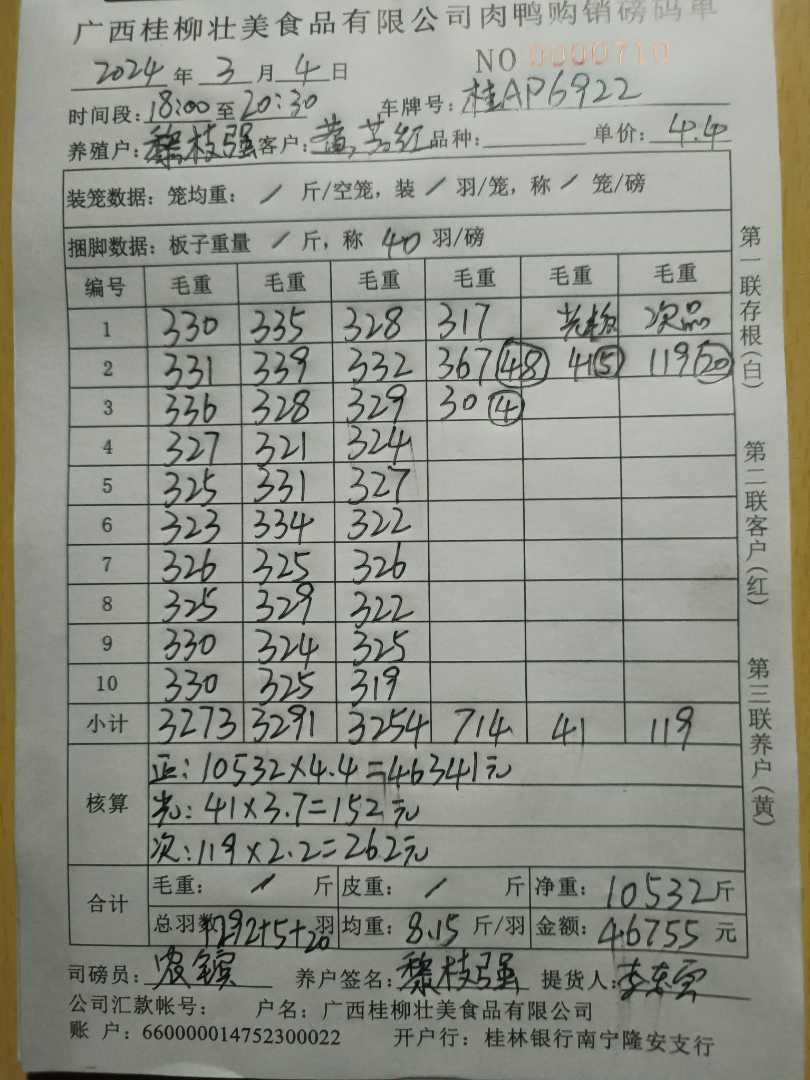 广西桂柳壮美食品有限公司肉鸭购销磅码单
2024 年 3 月 4 日 NO 0000710
时间段: 18:00 至 20:30 车牌号: 桂AP6922
养殖户: 黎枝强 客户: 黄 红 品种: 单价: 4.4
装笼数据: 笼均重: / 斤/空笼, 装 / 羽/笼, 称 / 笼/磅
捆脚数据: 板子重量 / 斤, 称 40 羽/磅
编号 毛重 毛重 毛重 毛重 毛重 毛重
1 330 335 328 317 光 次品
2 331 339 332 367 48 41 5 119 20
3 336 328 329 30 4
4 327 321 324
5 325 331 327
6 323 334 322
7 326 325 326
8 325 329 322
9 330 324 325
10 330 325 319
小计 3273 3291 3254 714 41 119
核算 正: 10532×4.4=46341元
光: 41×3.7=152元
次: 119×2.2=262元
合计 毛重: / 斤 皮重: / 斤 净重: 10532 斤
总羽数 1292+5+20 羽 均重: 8.15 斤/羽 金额: 46755 元
司磅员: 农 养户签名: 黎枝强 提货人: 李
公司汇款帐号: 户名: 广西桂柳壮美食品有限公司
账 户: 660000014752300022 开户行: 桂林银行南宁隆安支行
第一联存根(白)
第二联客户(红)
第三联养户(黄)